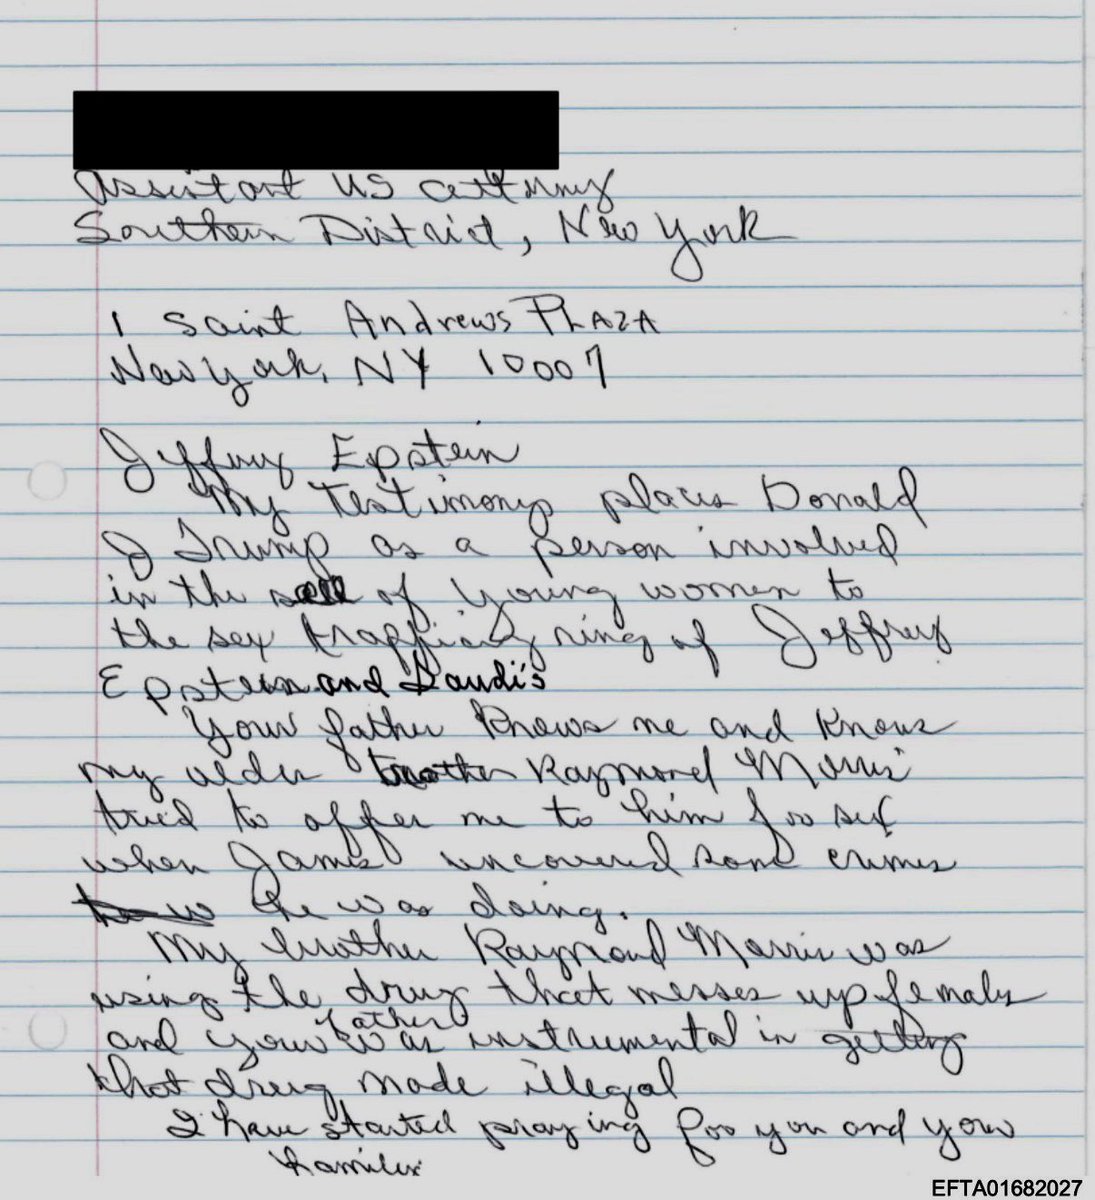 Assistant US Attorney
Southern District, New York
1 Saint Andrews PLAZA
New York, NY 10007
Jeffrey Epstein
My testimony places Donald
J Trump as a person involved
in the sell of young women to
the sex trafficing ring of Jeffrey
Epstein and Saudi's
Your father knows me and knows
my older brother Raymond Morris
tried to offer me to him for sex
when James uncovered some crimes
he was doing.
My brother Raymond Morris was
using the drug that messes up females
and your father was instrumental in getting
that drug made illegal
I have started praying for you and your
families
EFTA01682027